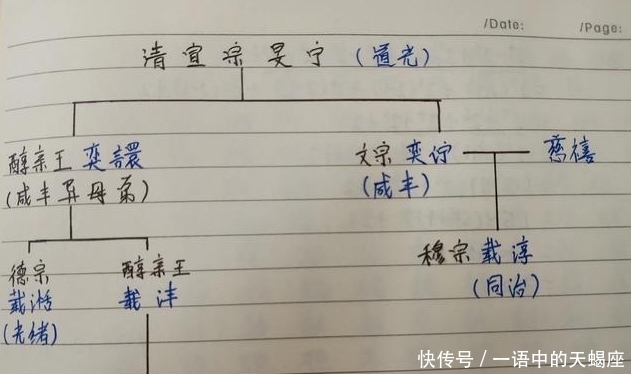 /Date: /Page:
清宣宗旻宁（道光）
醇亲王 奕譞 文宗 奕佇 慈禧
(咸丰异母弟) (咸丰)
德宗 醇亲王 穆宗 载淳
载湉 载沣 (同治)
(光绪)
快传号／一语中的天蝎座